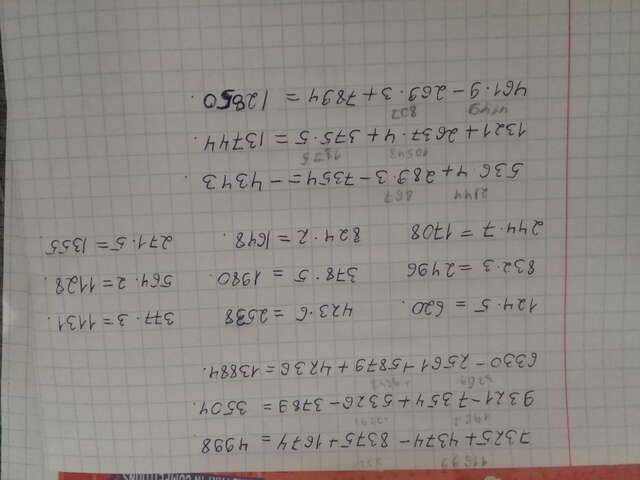 IN COMPETITIONS
11699
7325+4374-8375+1674=4998.
9321-7354+5326-3789=3504.
3769
6330-2561+5879+4236=13884.
124·5=620. 423·6=2538 377·3=1131.
832·3=2496 378·5=1980. 564·2=1128.
244·7=1708 824·2=1648. 271·5=1355.
2144 867
536·4+289·3-7354=-4343.
10548 1875
1321+2637·4+375·5=13744.
4149 807
461·9-269·3+7894=12850.